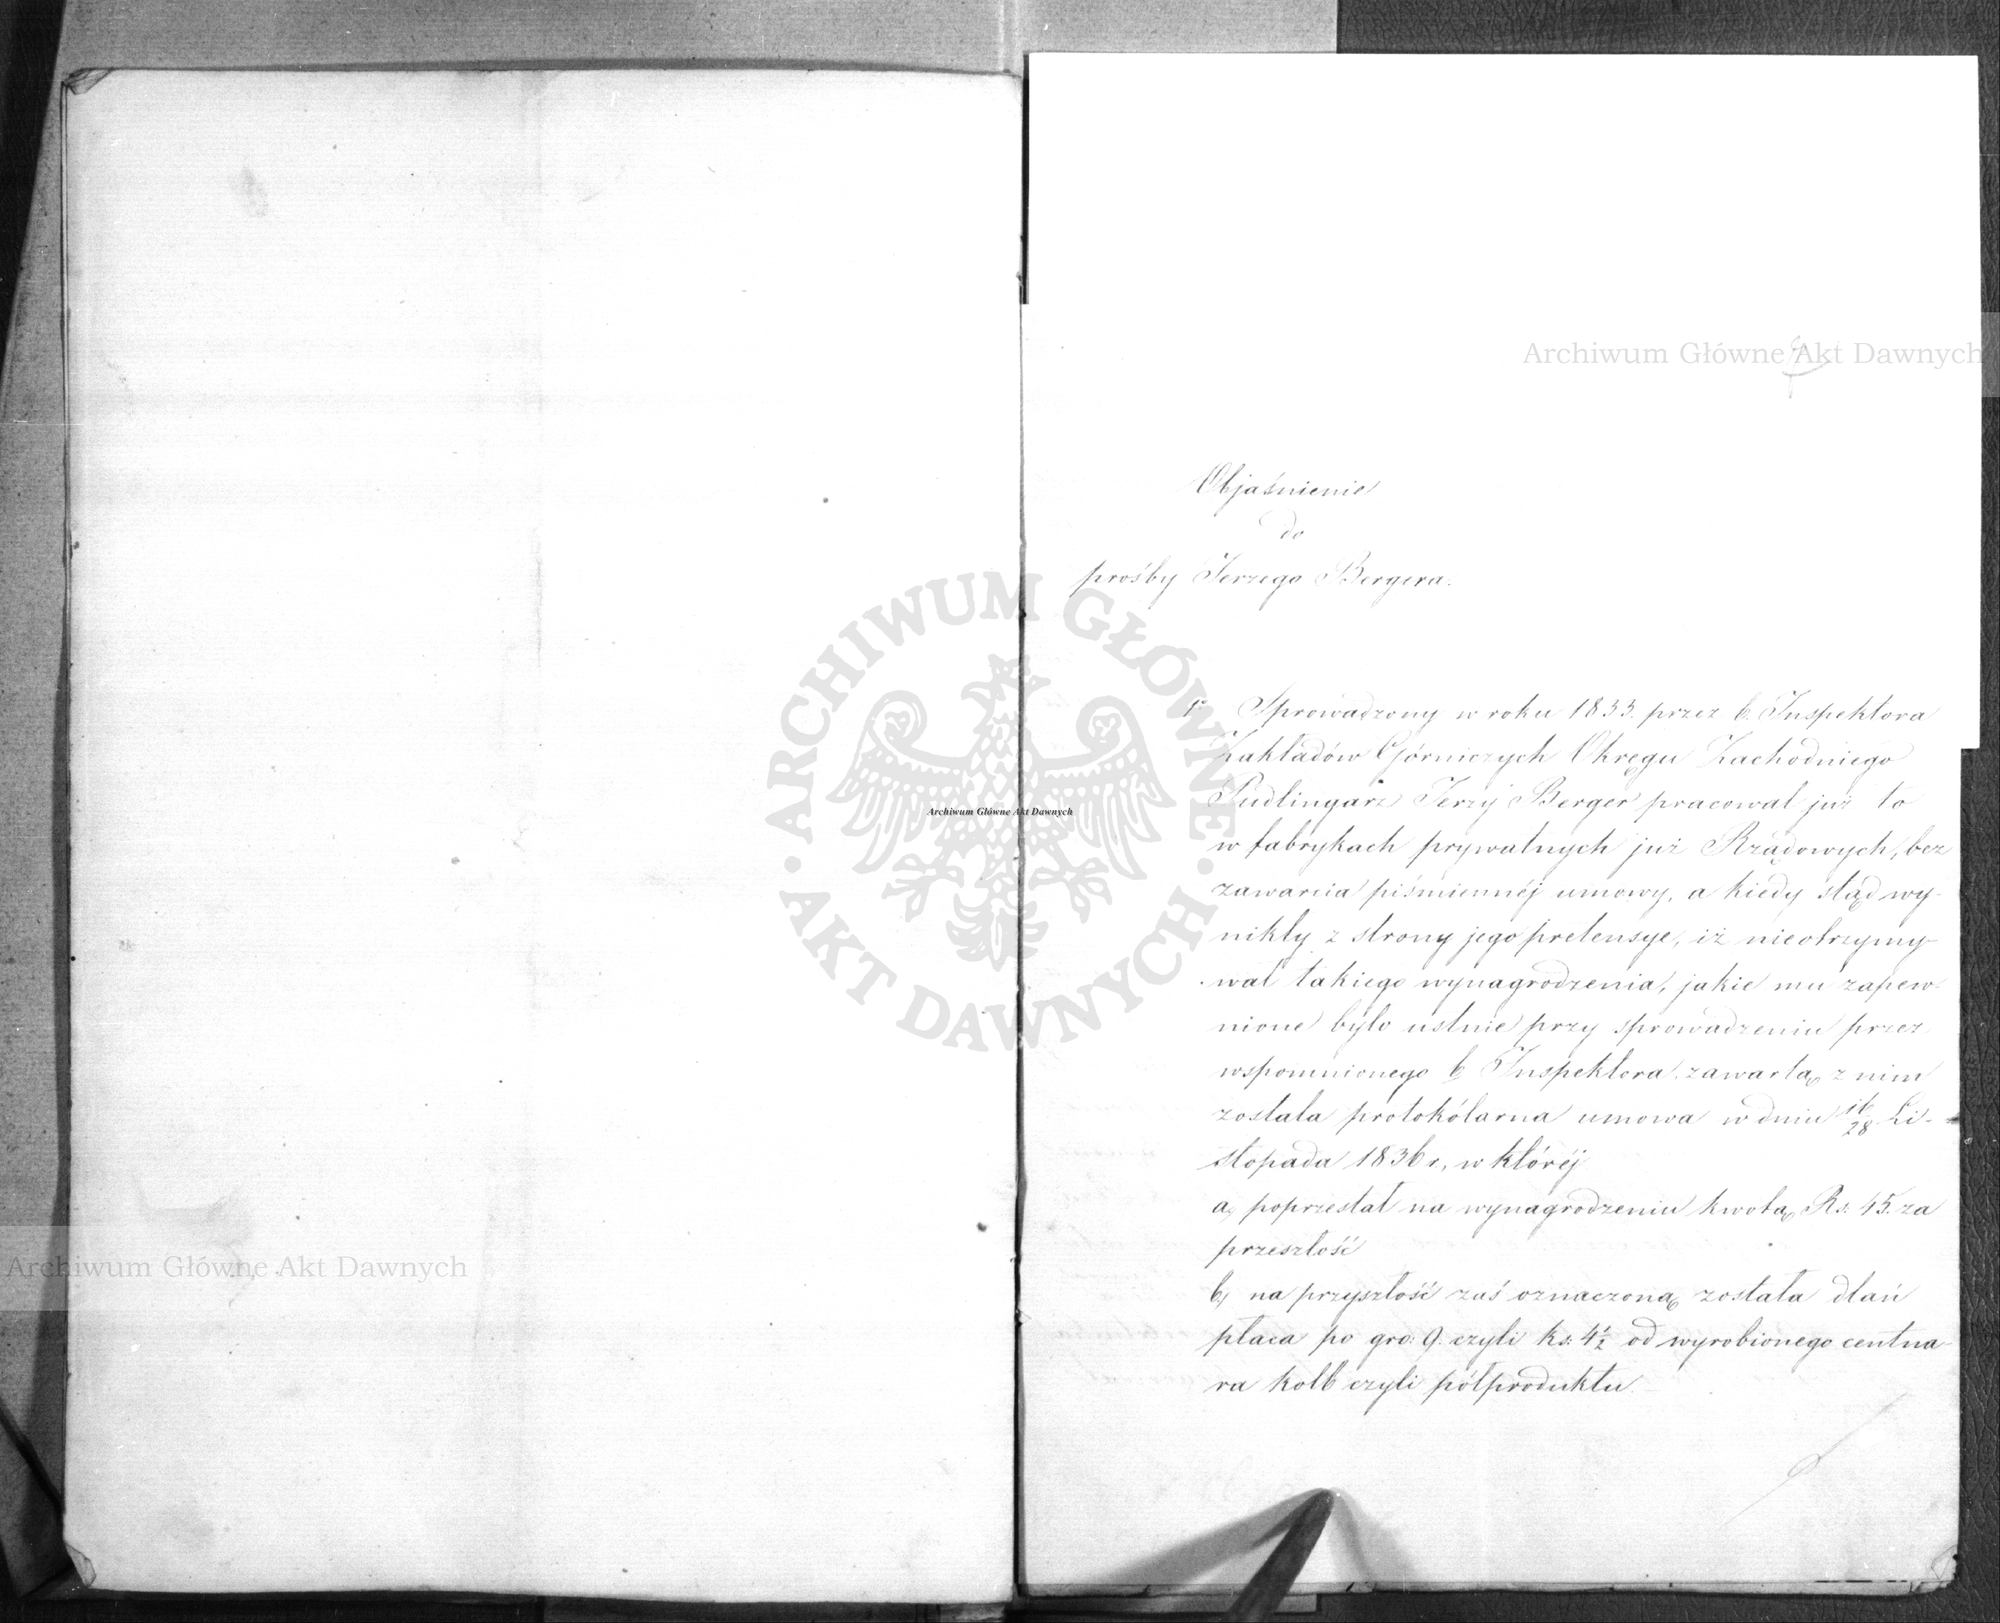 Objaśnienie
do
prośby Jerzego Bergera.
1º Sprowadzony w roku 1833. przez b. Inspektora
Zakładów Górniczych Okręgu Zachodniego
Pudlingarz Jerzy Berger pracował już to
w fabrykach prywatnych już Rządowych, bez
zawarcia piśmiennéj umowy, a kiedy stąd wy-
nikły z strony jego pretensye, iż nieotrzymy-
wał takiego wynagrodzenia, jakie mu zapew-
nione było ustnie przy sprowadzeniu przez
wspomnionego b. Inspektora zawartą z nim
została protokólarna umowa w dniu 16/28 Li-
stopada 1836 r, w któréj
a, poprzestał na wynagrodzeniu kwotą Rs: 45. za
przeszłość
b, na przyszłość zaś oznaczoną została dlań
płaca po gro: 9. czyli ks: 4½ od wyrobionego centna-
ra kolb czyli półproduktu
Archiwum Główne Akt Dawnych
Archiwum Główne Akt Dawnych
Archiwum Główne Akt Dawnych
ARCHIWUM GŁÓWNE · AKT DAWNYCH ·